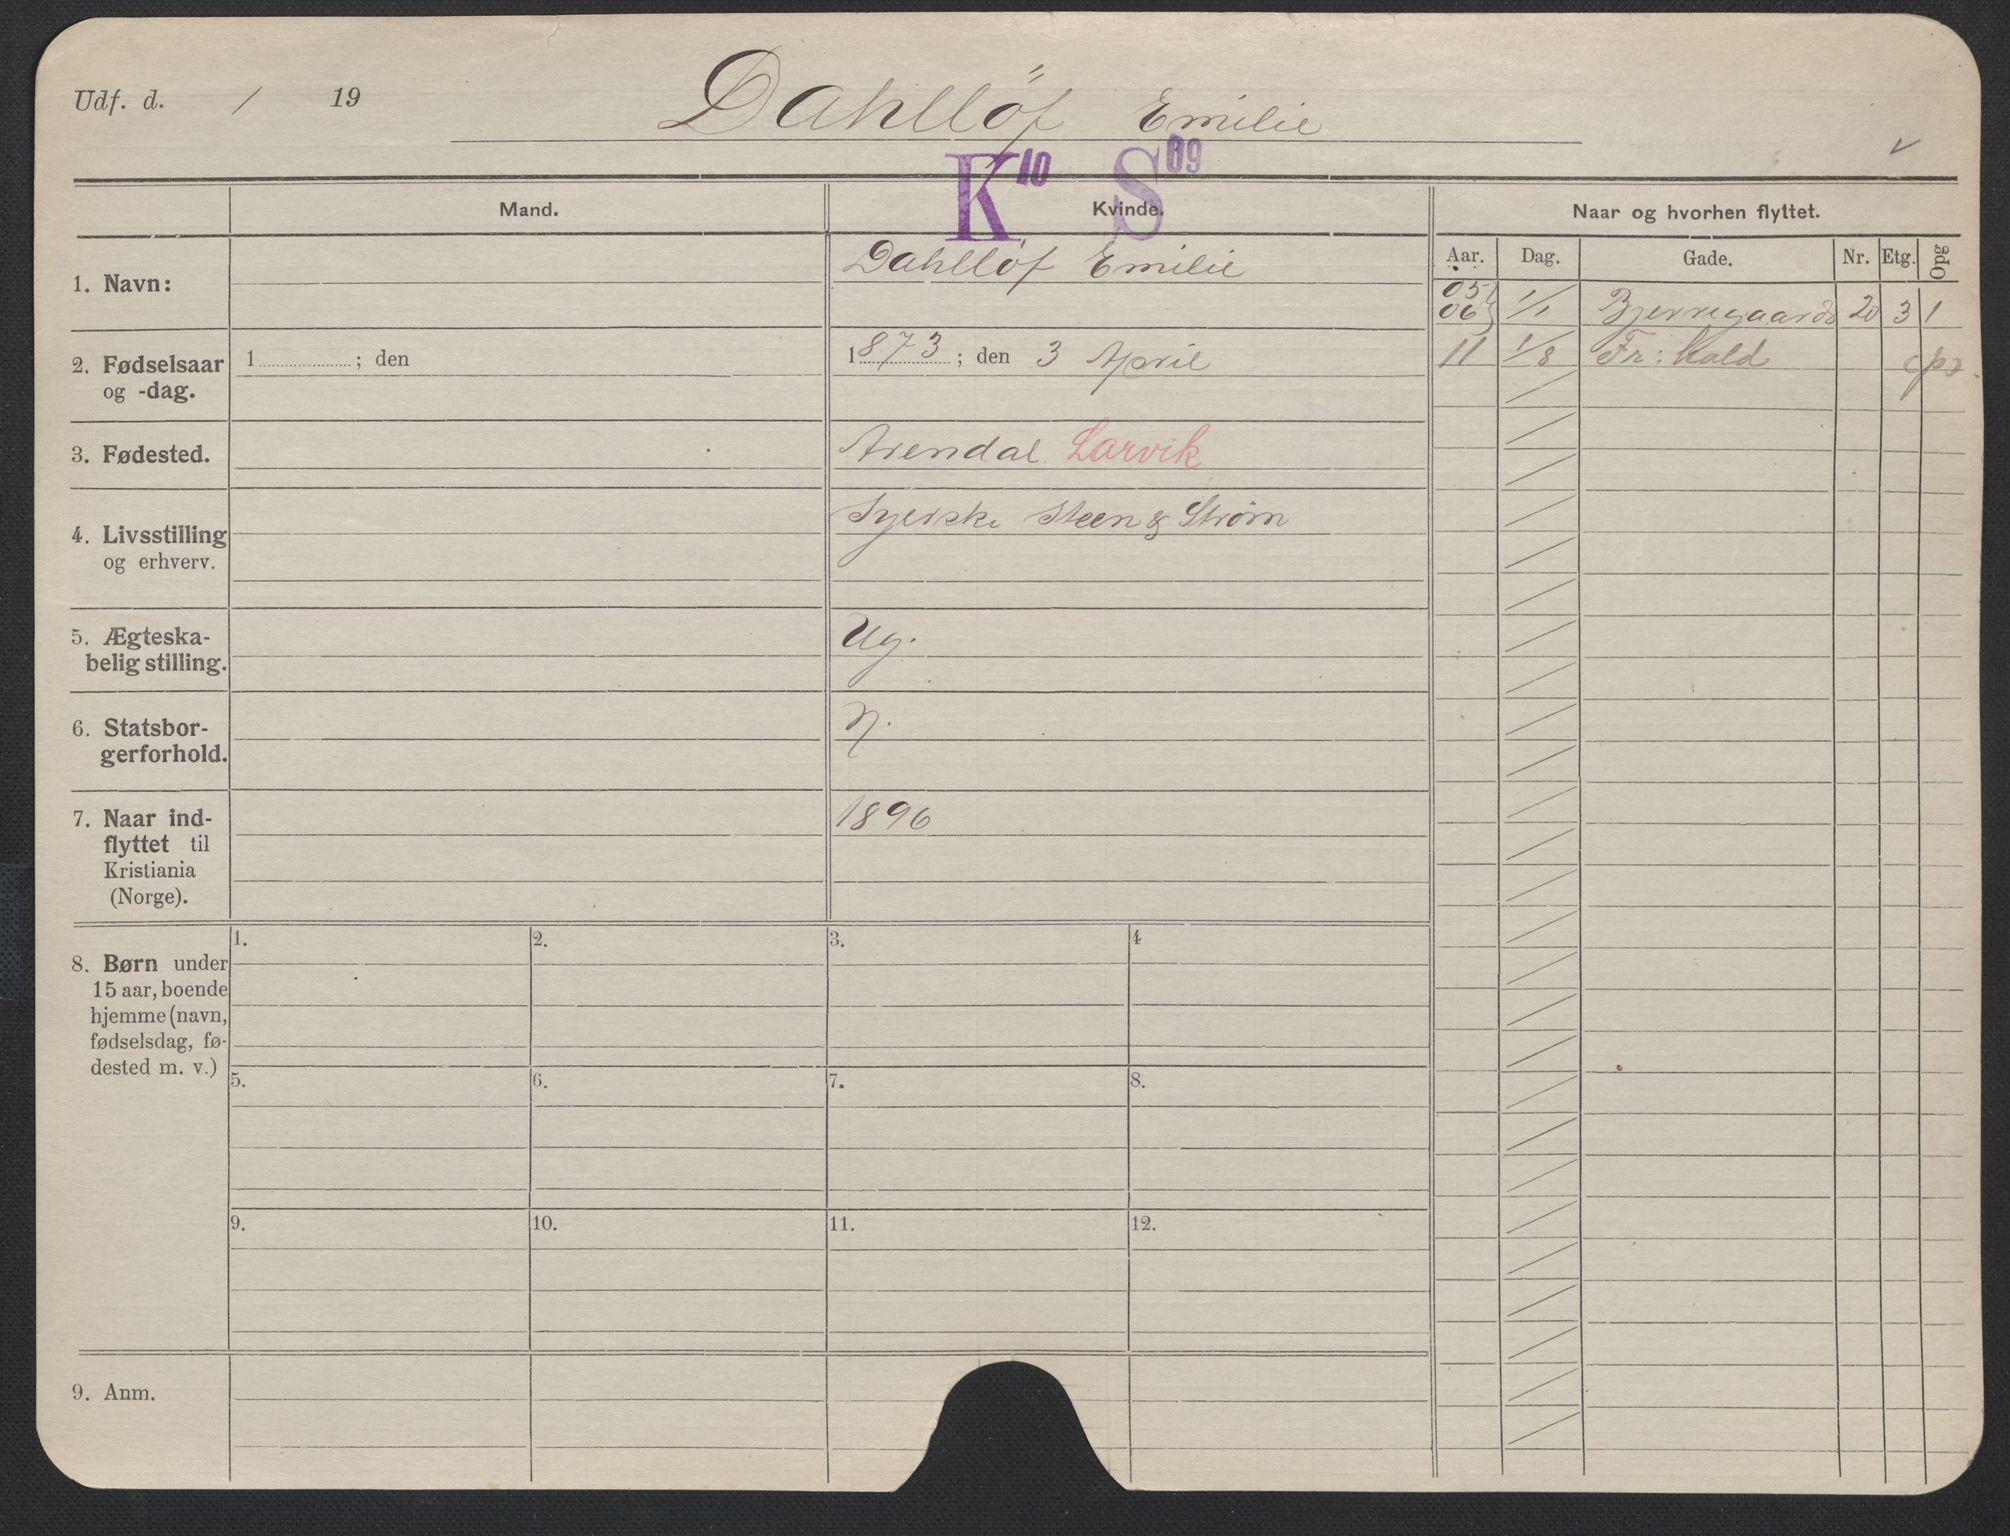 Udf. d. / 19
Dahllöf Emilie
K10 S09
Mand.
Kvinde.
Naar og hvorhen flyttet.
Aar. Dag. Gade. Nr. Etg. Opg
1. Navn:
Dahllöf Emilie
05 06 1/1 Bjerregaards 20 3 1
11 1/8 Fr: Kald
2. Fødselsaar og -dag.
1 ; den
1873 ; den 3 April
3. Fødested.
Arendal Larvik
4. Livsstilling og erhverv.
Syerske Steen & Strøm
5. Ægteska-
belig stilling.
Ug.
6. Statsbor-
gerforhold.
N.
7. Naar ind-
flyttet til
Kristiania
(Norge).
1896
8. Børn under
15 aar, boende
hjemme (navn,
fødselsdag, fø-
dested m. v.)
1. 2. 3. 4
5. 6. 7. 8.
9. 10. 11. 12.
9. Anm.